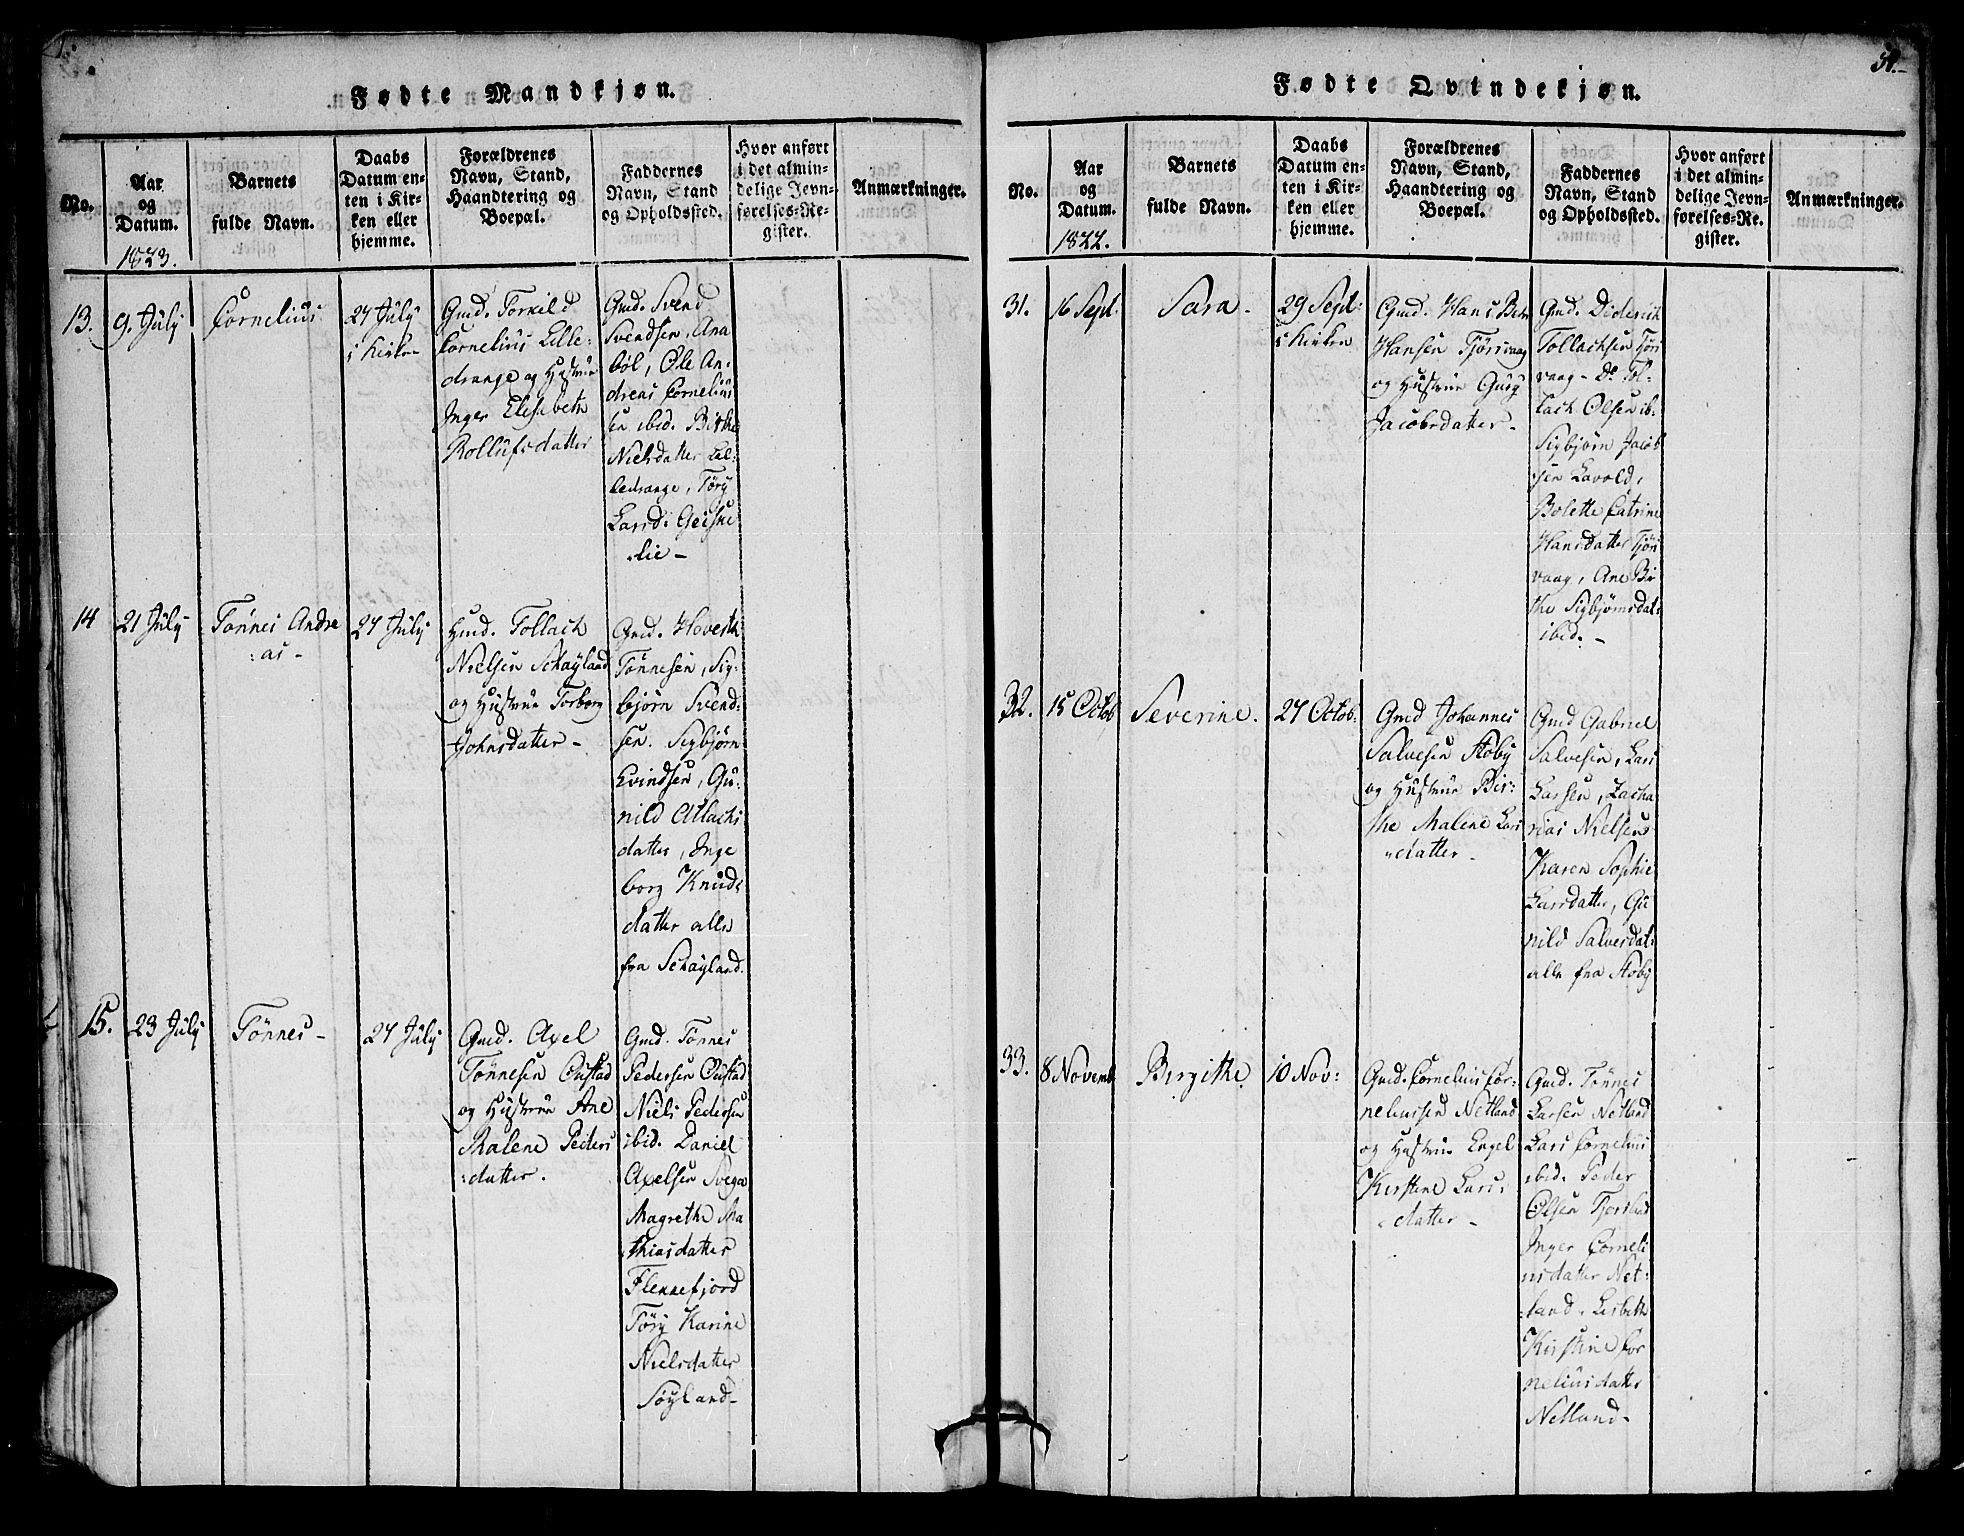 Fødte Mandkjøn.
No.
Aar
og
Datum.
1823.
Barnets
fulde Navn.
Daabs
Datum en-
ten i Kir-
ken eller
hjemme.
Forældrenes
Navn, Stand,
Haandtering og
Boepæl.
Faddernes
Navn, Stand
og Opholdssted.
Hvor anført
i det almin-
delige Jevn-
førelses-Re-
gister.
Anmærkninger.
13.
9. July
Cornelius
27 July
i Kirken
Gmd. Torkild
Cornelius Lille-
drange og Hustrue
Inger Elisabeth
Rollufsdatter
Gmd. Svend
Svendsen, Ana
böl, Ole An-
dreas Cornelius
sen ibid. Birthe
Nielsdatter Lil-
ledrange, Töry
Larsd: Geiske
lie -
14
21 July
Tönnes Andre
:as -
27 July
Hmd. Tollach
Nielsen Schayland
og Hustrue Torborg
Johnsdatter -
Gmd. Hoverth
Tönnesen, Sig-
bjørn Svend-
sen. Sigbjørn
Evindsen, Gu-
nild Atlachs
datter, Inge
borg Knuds
datter alle
fra Schayland.
15.
23 July
Tönnes -
27 July
Gmd. Axel
Tönnesen Oustad
og Hustrue Ane
Malene Peders
:datter.
Gmd. Tönnes
Pedersen Oustad
Niels Pedersen
ibid. Daniel
Axelsen Svega
Magrethe Ma
thiasdatter
Flekkefjord
Töry Karine
Nielsdatter
Söyland -
51.
Fødte Qvindekjøn.
No.
Aar
og
Datum.
1822.
Barnets
fulde Navn.
Daabs
Datum en-
ten i Kir-
ken eller
hjemme.
Forældrenes
Navn, Stand,
Haandtering og
Boepæl.
Faddernes
Navn, Stand
og Opholdssted.
Hvor anført
i det almin-
delige Jevn-
førelses-Re-
gister.
Anmærkninger.
31.
16 Sept.
Sara -
29 Sept:
i Kirken
Gmd. Hans
Hansen Tjörsvaag
og Hustrue Gurj
Jacobsdatter -
Gmd. Diderich
Tollachsen Tjörs
vaag - Do Tol-
lach Olsen ib:
Sigbjörn Jacob
sen Lavold,
Bolette Catrine
Hansdatter Tjörs
vaag, Ane Bir
the Sigbjørnsdat:
ibid. -
32.
15 Octob
Severine.
27 Octob:
Gmd Johannes
Salvesen Stoby
og Hustrue Bir-
the Malene Lars
datter -
Gmd Gabriel
Salvesen, Lars
Larsen, Zacha
rias Nielsen
Karen Sophie
Larsdatter, Gu
nild Salvesdat:
alle fra Stoby
33.
8 Novemb
Birgithe
10 Nov:
Gmd. Cornelius Cor-
neliussen Netland
og Hustrue Engel
Kirstine Lars-
datter -
Gmd. Tönnes
Larsen Netland
Lars Cornelius
ibid. Peder
Olsen Tjorsland
Inger Corneli
usdatter Net-
land. Lisbeth
Kirstine Cor
neliusdatter
Netland -